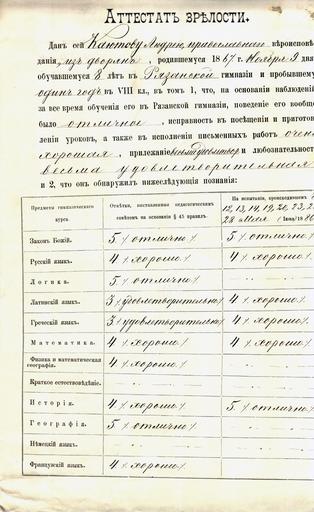 Аттестатъ зрѣлости.
Данъ сей Кантову Андрею, православнаго вѣроисповѣ
данія, изъ дворянъ, родившемуся 1867 г. Ноября 9 дня
обучавшемуся 8 лѣтъ въ Рязанской гимназіи и пробывшему
одинъ годъ въ VIII кл., въ томъ 1, что, на основаніи наблюденій
за все время обученія его въ Рязанской гимназіи, поведеніе его вообще
было отличное, исправность въ посѣщеніи и пригото
вленіи уроковъ, а также въ исполненіи письменныхъ работъ очень
хорошая, прилежаніе и любознательность
весьма удовлетворительная
и 2, что онъ обнаружилъ нижеслѣдующія познанія:
Предметы гимназическаго курса Отмѣтки, поставленныя педагогическимъ совѣтомъ на основаніи § 45 правилъ. На испытаніи, происходившемъ
12, 13, 14, 19, 20, 23, 2
28 мая
Законъ Божій. 5 / отлично / 5 / отлично /
Русскій языкъ. 4 / хорошо / 4 / хорошо /
Логика. 5 / отлично /
Латинскій языкъ. 3 / удовлетворительно / 4 / хорошо /
Греческій языкъ. 3 / удовлетворительно / 4 / хорошо /
Математика. 4 / хорошо / 4 / хорошо /
Физика и математическая географія. 4 / хорошо /
Краткое естествовѣдѣніе.
Исторія. 4 / хорошо / 5 / отлично /
Географія. 5 / отлично /
Нѣмецкій языкъ.
Французскій языкъ. 4 / хорошо /